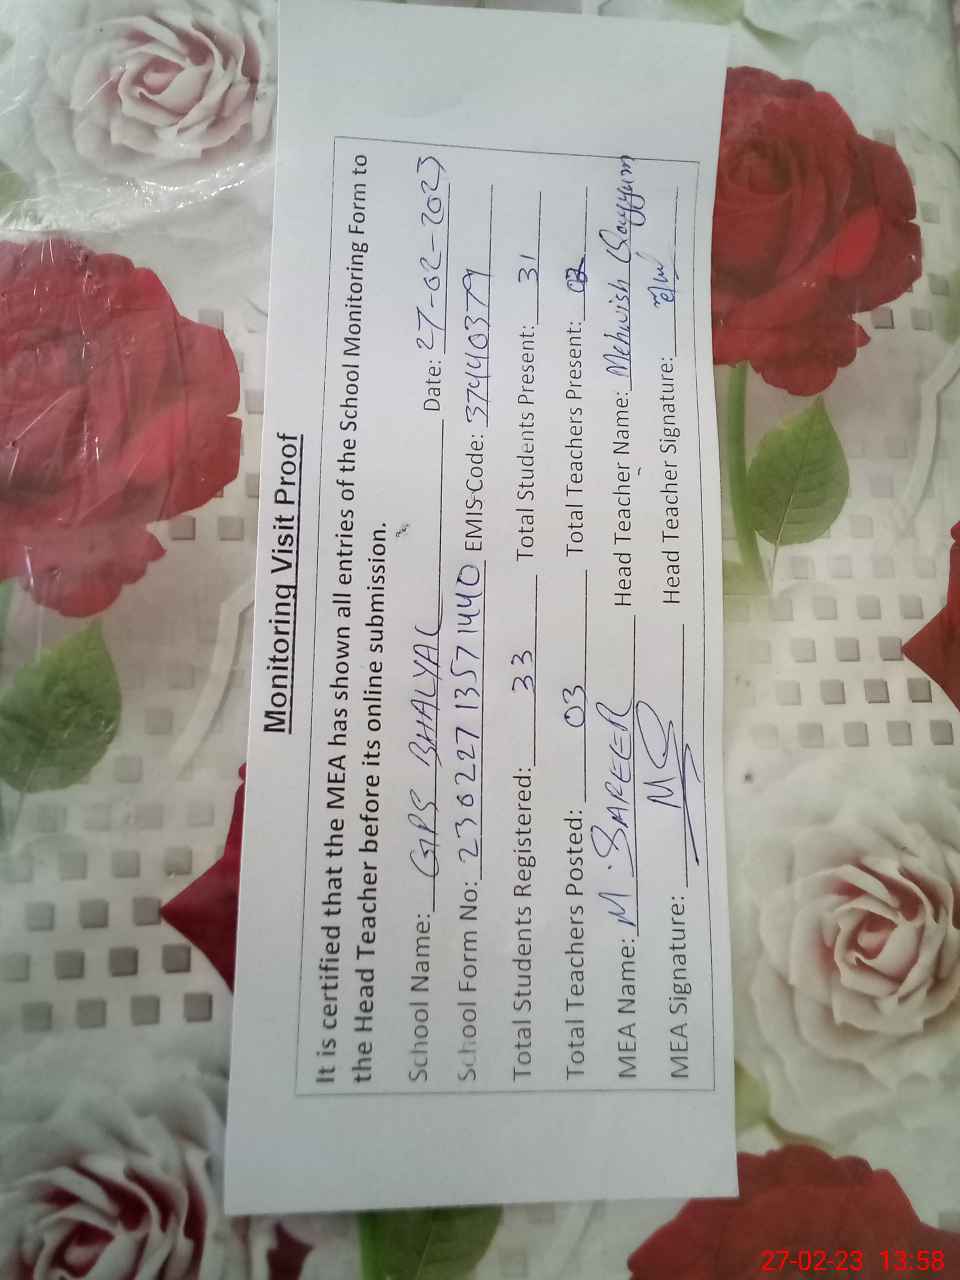 Monitoring Visit Proof
It is certified that the MEA has shown all entries of the School Monitoring Form to
the Head Teacher before its online submission.
School Name: GPS BHALYAL Date: 27-02-2023
School Form No: 236227 1357 1440 EMIS Code: 37440379
Total Students Registered: 33 Total Students Present: 31
Total Teachers Posted: 03 Total Teachers Present: 02
MEA Name: M. SAREER Head Teacher Name: Mehwish Qayyum
MEA Signature: MS Head Teacher Signature:
27-02-23 13:58